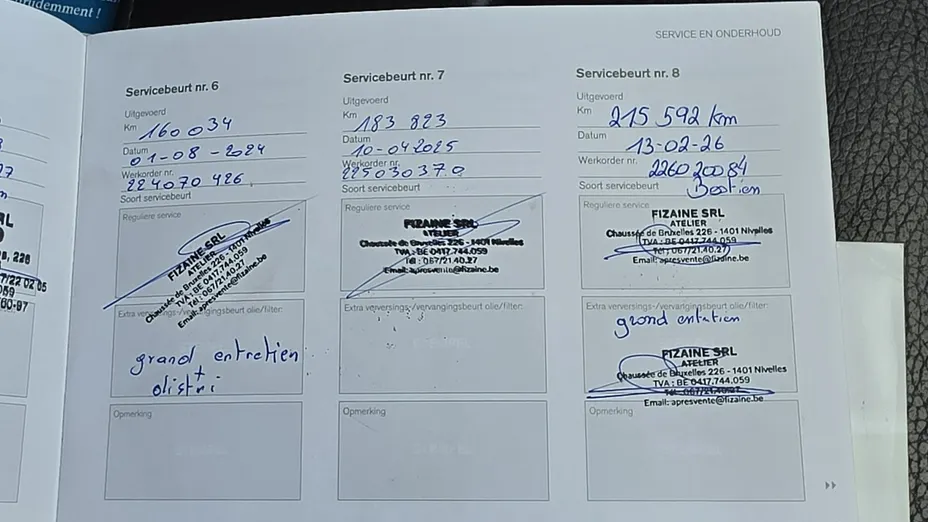 idemment !
SERVICE EN ONDERHOUD
Servicebeurt nr. 6
Uitgevoerd
Km 160 034
Datum 01-08-2024
Werkorder nr. 224070 426
Soort servicebeurt
Reguliere service
FIZAINE SRL
ATELIER
Chaussée de Bruxelles 226 - 1401 Nivelles
TVA : BE 0417.744.059
Tél : 067/21.40.27
Email: apresvente@fizaine.be
Extra verversings-/vervangingsbeurt olie/filter:
grand entretien
+
distri
Opmerking
Servicebeurt nr. 7
Uitgevoerd
Km 183 823
Datum 10-04 2025
Werkorder nr. 225030370
Soort servicebeurt
Reguliere service
FIZAINE SRL
ATELIER
Chaussée de Bruxelles 226 - 1401 Nivelles
TVA : BE 0417.744.059
Tél : 067/21.40.27
Email: apresvente@fizaine.be
Extra verversings-/vervangingsbeurt olie/filter:
Opmerking
Servicebeurt nr. 8
Uitgevoerd
Km 215 592 km
Datum 13-02-26
Werkorder nr. 226020084
Soort servicebeurt
Reguliere service
FIZAINE SRL
ATELIER
Chaussée de Bruxelles 226 - 1401 Nivelles
TVA : BE 0417.744.059
Tél : 067/21.40.27
Email: apresvente@fizaine.be
Extra verversings-/vervangingsbeurt olie/filter:
grand entretien
FIZAINE SRL
ATELIER
Chaussée de Bruxelles 226 - 1401 Nivelles
TVA : BE 0417.744.059
Tél : 067/21.40.27
Email: apresvente@fizaine.be
Opmerking